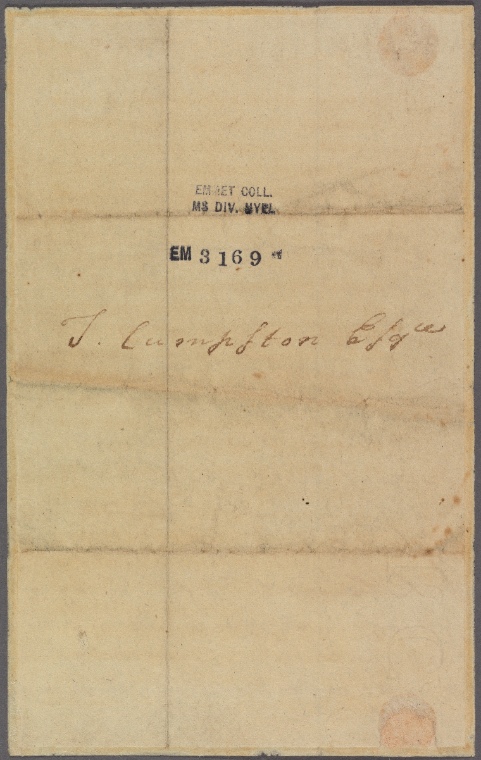 EMMET COLL.
MS DIV. NYPL
EM 3169
T. Cumpſton Eſqre